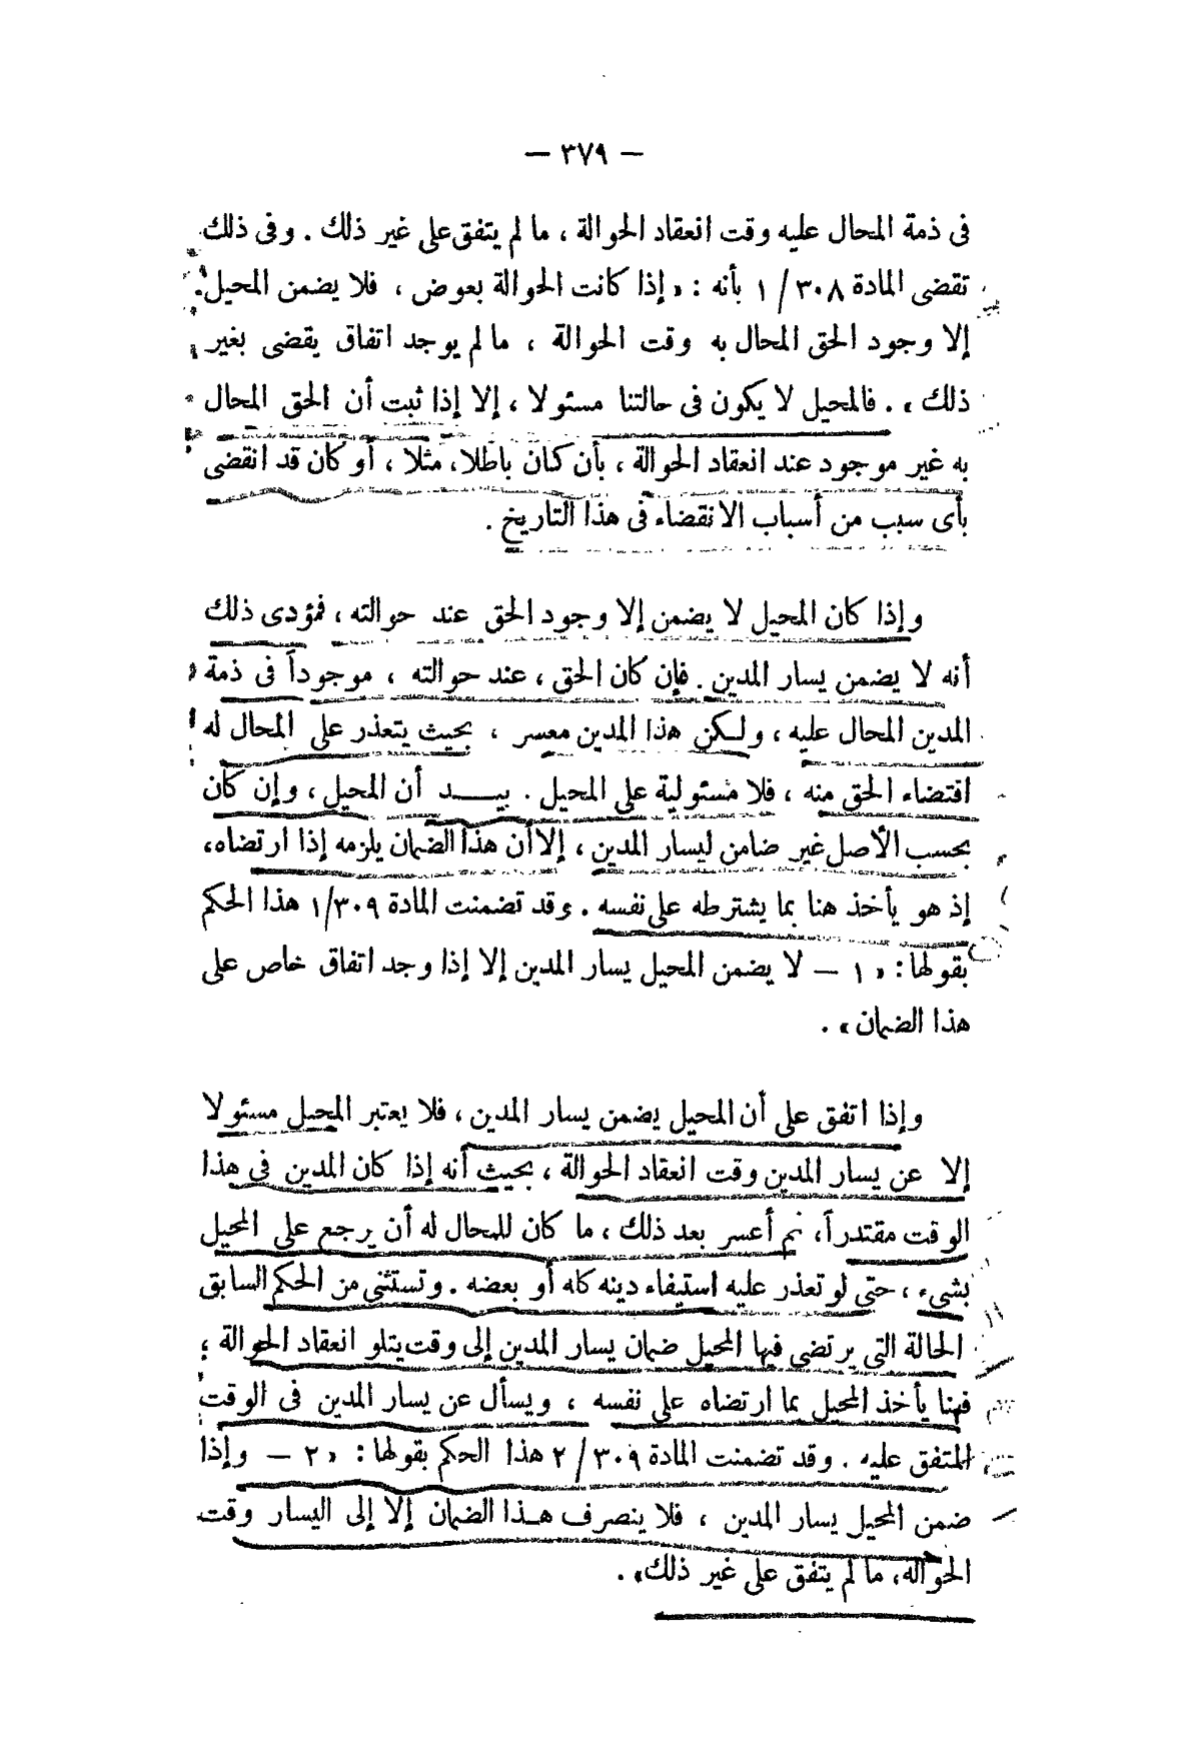 — ٣٧٩ —
فى ذمة المحال عليه وقت انعقاد الحوالة ، ما لم يتفق على غير ذلك . وفى ذلك
تقضى المادة ٣٠٨ / ١ بأنه : « إذا كانت الحوالة بعوض ، فلا يضمن المحيل
إلا وجود الحق المحال به وقت الحوالة ، ما لم يوجد اتفاق يقضى بغير
ذلك » . فالمحيل لا يكون فى حالتنا مسئولا ، إلا إذا ثبت أن الحق المحال
به غير موجود عند انعقاد الحوالة ، بأن كان باطلا، مثلا ، أو كان قد انقضى
بأى سبب من أسباب الانقضاء فى هذا التاريخ .
وإذا كان المحيل لا يضمن إلا وجود الحق عند حوالته ، فمؤدى ذلك
أنه لا يضمن يسار المدين . فإن كان الحق ، عند حوالته ، موجوداً فى ذمة
المدين المحال عليه ، ولكن هذا المدين معسر ، بحيث يتعذر على المحال له
اقتضاء الحق منه ، فلا مسئولية على المحيل . بيد أن المحيل ، وإن كان
بحسب الأصل غير ضامن ليسار المدين ، إلا أن هذا الضمان يلزمه إذا ارتضاه،
إذ هو يأخذ هنا بما يشترطه على نفسه . وقد تضمنت المادة ١/٣٠٩ هذا الحكم
بقولها : « ١ — لا يضمن المحيل يسار المدين إلا إذا وجد اتفاق خاص على
هذا الضمان » .
وإذا اتفق على أن المحيل يضمن يسار المدين ، فلا يعتبر المحيل مسئولا
إلا عن يسار المدين وقت انعقاد الحوالة ، بحيث أنه إذا كان المدين فى هذا
الوقت مقتدراً، ثم أعسر بعد ذلك ، ما كان للمحال له أن يرجع على المحيل
بشىء ، حتى لو تعذر عليه استيفاء دينه كله أو بعضه . وتستثنى من الحكم السابق
الحالة التى يرتضى فيها المحيل ضمان يسار المدين إلى وقت يتلو انعقاد الحوالة ؛
فهنا يأخذ المحيل بما ارتضاه على نفسه ، ويسأل عن يسار المدين فى الوقت
المتفق عليه . وقد تضمنت المادة ٣٠٩ / ٢ هذا الحكم بقولها : « ٢ — وإذا
ضمن المحيل يسار المدين ، فلا ينصرف هذا الضمان إلا إلى اليسار وقت
الحوالة، ما لم يتفق على غير ذلك» .